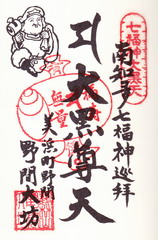 七福神大黒天
南知多七福神巡拝
大黒尊天
美浜町野間
野間大坊